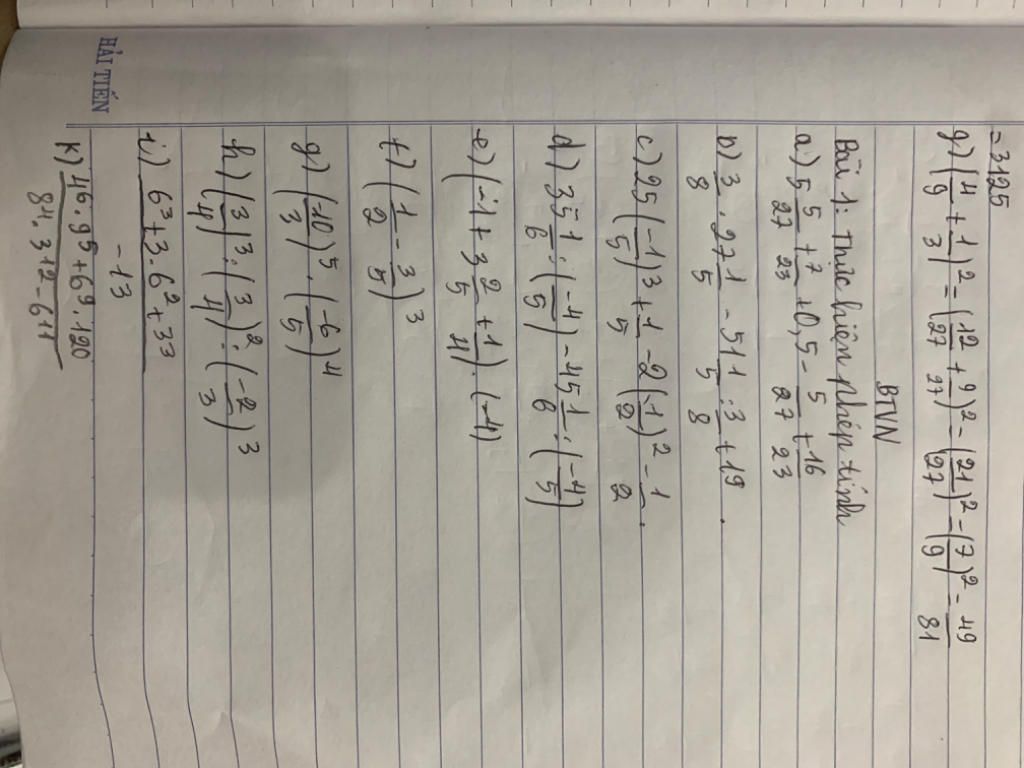 = 3125
g) (4/9 + 1/3)² = (12/27 + 9/27)² = (21/27)² = (7/9)² = 49/81
BTVN
Bài 1: Thực hiện phép tính
a) 5 5/27 + 7/23 + 0,5 - 5/27 + 16/23
b) 3/8 . 27 1/5 - 51 1/5 . 3/8 + 19.
c) 25(-1/5)³ + 1/5 - 2(-1/2)² - 1/2.
d) 35 1/6 : (-4/5) - 45 1/6 : (-4/5)
e) (-1 + 3 2/5 + 1/4) . (-4)
f) (1/2 - 3/5)³
g) (-10/3)⁵ . (-6/5)⁴
h) (3/4)³ : (3/4)² : (-2/3)³
i) 6³ + 3.6² + 3³ / -13
k) 4⁶ . 9⁵ + 6⁹ . 120 / 8⁴ . 3¹² - 6¹¹
HẢI TIẾN